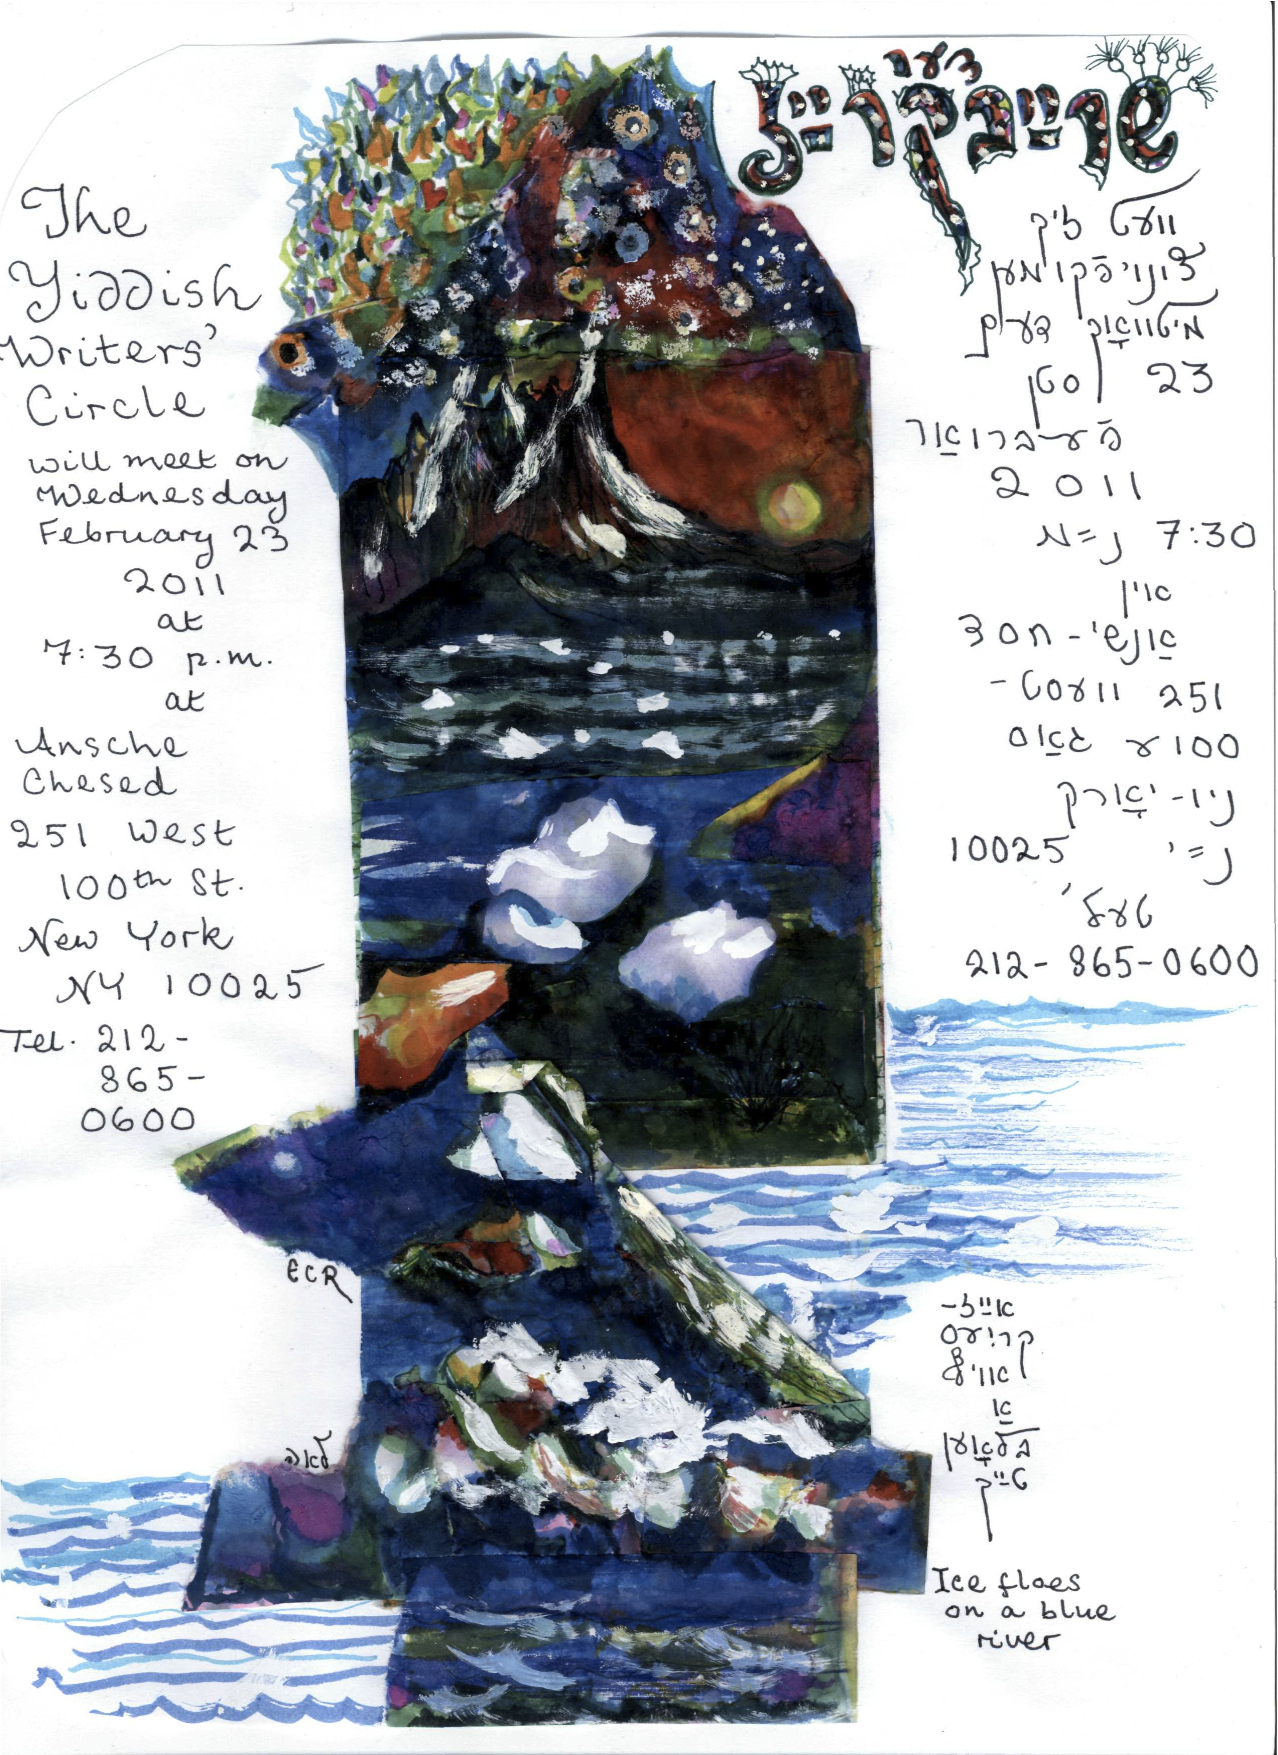 The
Yiddish
Writers'
Circle
will meet on
Wednesday
February 23
2011
at
7:30 p.m.
at
Ansche
Chesed
251 West
100th St.
New York
NY 10025
Tel. 212-
865-
0600
דער
שרײַבקרײַז
וועט זיך
צונויפֿקומען
מיטוואָך דעם
23סטן
פֿעברואַר
2011
7:30 נ=מ
אין
אַנשי-חסד
251 וועסט-
100ער גאַס
ניו-יאָרק
נ=י 10025
טעל'
212-865-0600
ECR
אײַז-
קריִעס
אויף
אַ
בלאָען
טײַך
Ice floes
on a blue
river